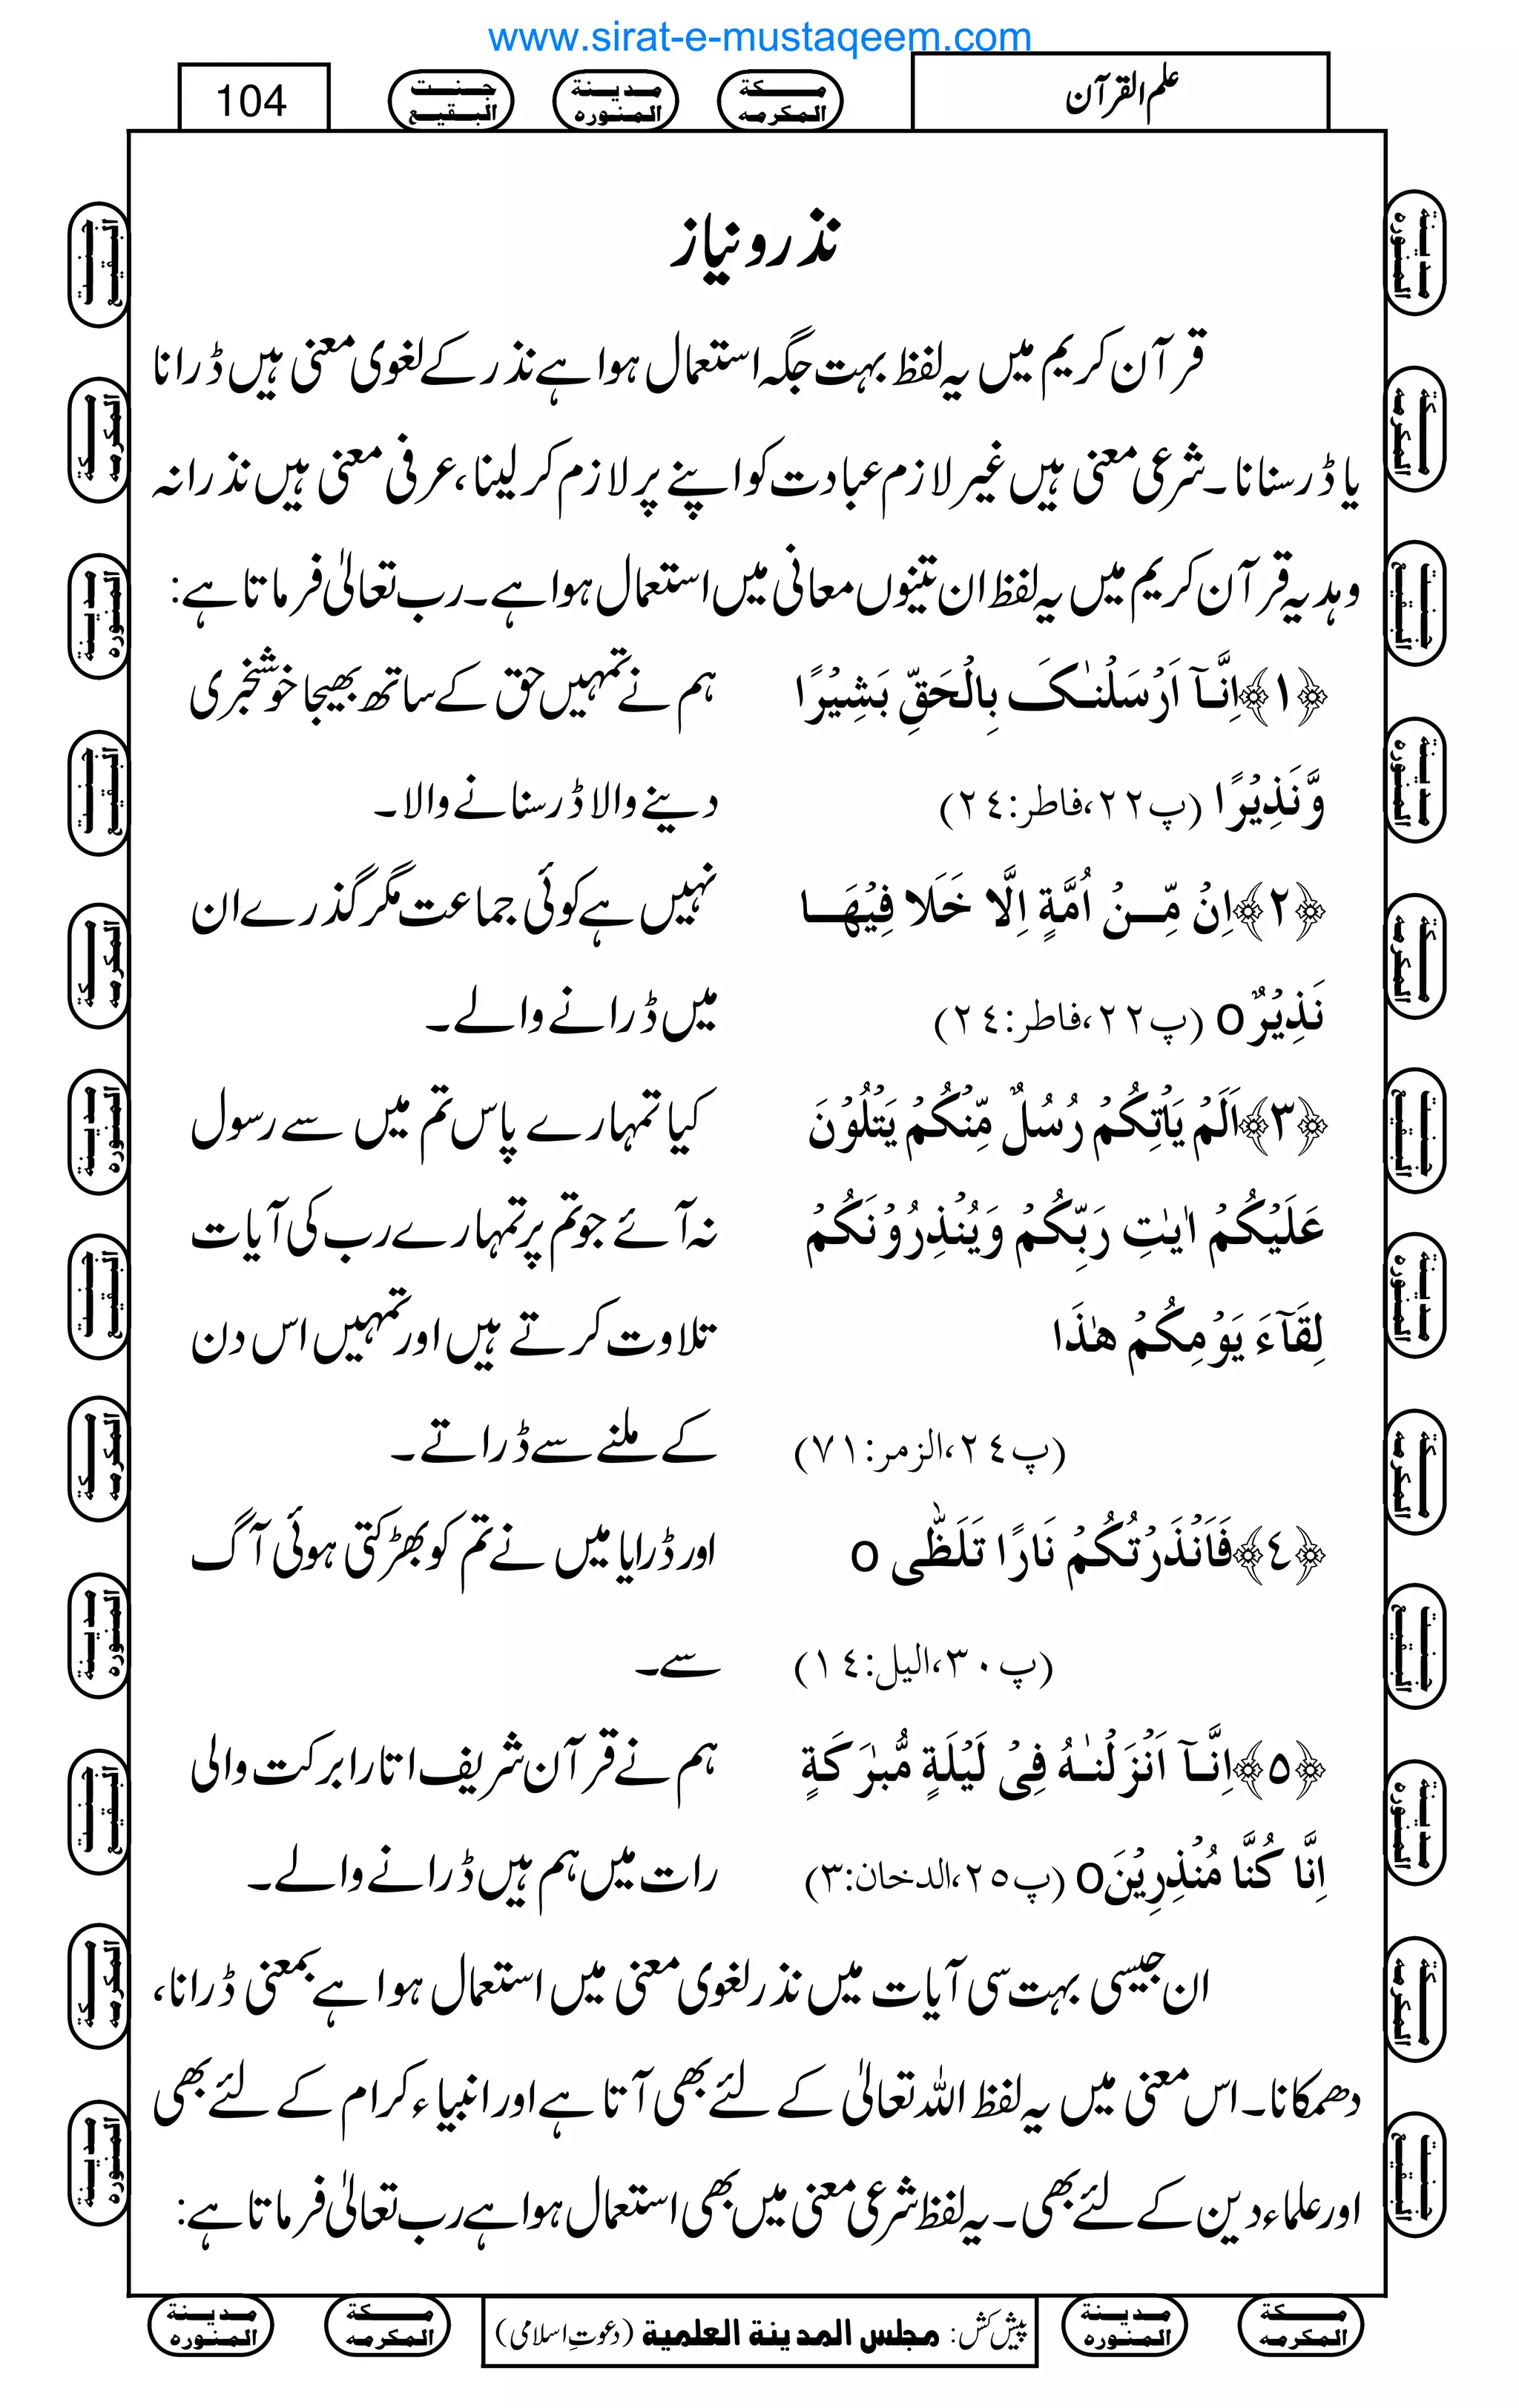 www.sirat-e-mustaqeem.com
علم القرآن
مكة المكرمه
مدينة المنوره
جنت البقيع
104
نذر ونیاز
قرآن کریم میں یہ لفظ بہت جگہ استعمال ہوا ہے نذر کے لغوی معنی ہیں ڈرانا
یا ڈر سنانا۔ شرعی معنی ہیں غیر لازم عبادت کو اپنے پر لازم کر لینا، عرفی معنی ہیں نذرانہ
وہدیہ قرآن کریم میں یہ لفظ ان تینوں معانی میں استعمال ہوا ہے۔ رب تعالیٰ فرماتا ہے:
﴿۱﴾اِنَّآ اَرْسَلْنٰکَ بِالْحَقِّ بَشِیْرًا ہم نے تمہیں حق کے ساتھ بھیجا خوشخبری
وَّنَذِیْرًا (پ۲۲،فاطر:۲٤) دینے والا ڈر سنانے والا۔
﴿۲﴾اِنْ مِّنْ اُمَّةٍ اِلَّا خَلَا فِیْهَا نہیں ہے کوئی جماعت مگر گذرے ان
نَذِیْرٌo (پ۲۲،فاطر:۲٤) میں ڈرانے والے۔
﴿۳﴾اَلَمْ یَاْتِکُمْ رُسُلٌ مِّنْکُمْ یَتْلُوْنَ کیا تمہارے پاس تم میں سے رسول
عَلَیْکُمْ اٰیٰتِ رَبِّکُمْ وَیُنْذِرُوْنَکُمْ نہ آئے جو تم پر تمہارے رب کی آیات
لِقَآءَ یَوْمِکُمْ هٰذَا تلاوت کرتے ہیں اور تمہیں اس دن
(پ۲٤،الزمر:۷۱) کے ملنے سے ڈراتے۔
﴿٤﴾فَاَنْذَرْتُکُمْ نَارًا تَلَظّٰی o اور ڈرایا میں نے تم کو بھڑکتی ہوئی آگ
(پ۳۰،الیل:۱٤) سے۔
﴿۵﴾اِنَّآ اَنْزَلْنٰهُ فِیْ لَیْلَةٍ مُّبٰرَکَةٍ ہم نے قرآن شریف اتارا برکت والی
اِنَّا کُنَّا مُنْذِرِیْنَo (پ۲۵،الدخان:۳) رات میں ہم ہیں ڈرانے والے۔
ان جیسی بہت سی آیات میں نذر لغوی معنی میں استعمال ہوا ہے بمعنی ڈرانا،
دھمکانا۔ اس معنی میں یہ لفظ اللہ تعالیٰ کے لئے بھی آتا ہے اور انبیاء کرام کے لئے بھی
اور علماء دین کے لئے بھی۔ یہ لفظ شرعی معنی میں بھی استعمال ہوا ہے رب تعالیٰ فرماتا ہے:
پیش کش: مجلس المدینة العلمیة (دعوتِ اسلامی)